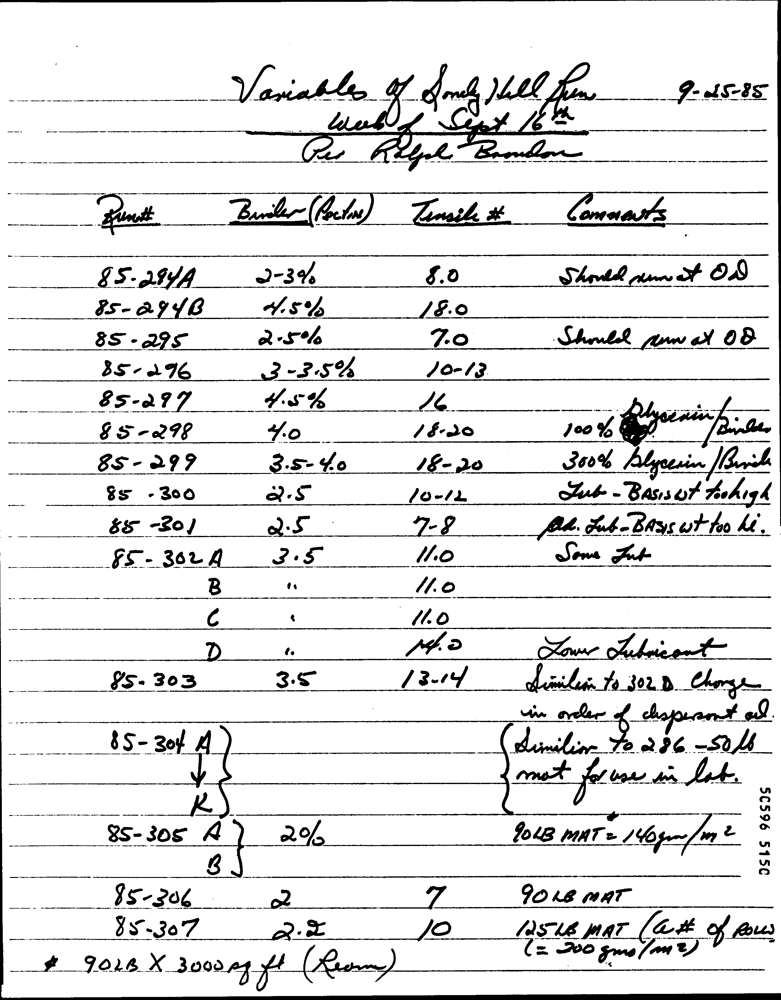 Variables of Sandy Hill Run 9-25-85
Week of Sept 16th
Per Ralph Brandon
Run# Binder (Pectin) Tensile # Comments
85-294A 2-3% 8.0 Should run at OD
85-294B 4.5% 18.0
85-295 2.5% 7.0 Should run at OD
85-296 3-3.5% 10-13
85-297 4.5% 16
85-298 4.0 18-20 100% Glycerin/Binder
85-299 3.5-4.0 18-20 300% Glycerin/Bind
85-300 2.5 10-12 Lub-BASIS wt too high
85-301 2.5 7-8 Lub-BASIS wt too hi.
85-302 A 3.5 11.0 Some Lub
B " 11.0
C " 11.0
D " 14.0 Lower Lubricant
85-303 3.5 13-14 Similar to 302 D Change
in order of dispersant ad.
85-304 A Similar to 286 -50 lb
mat for use in lab.
K
85-305 A 2% 90LB MAT* = 140 gm/m2
B
85-306 2 7 90 LB MAT
85-307 2.2 10 125 LB MAT (a # of ROLLS
(= 200 gms/m2)
* 90LB X 3000 sq ft (Ream)
5C596 515C